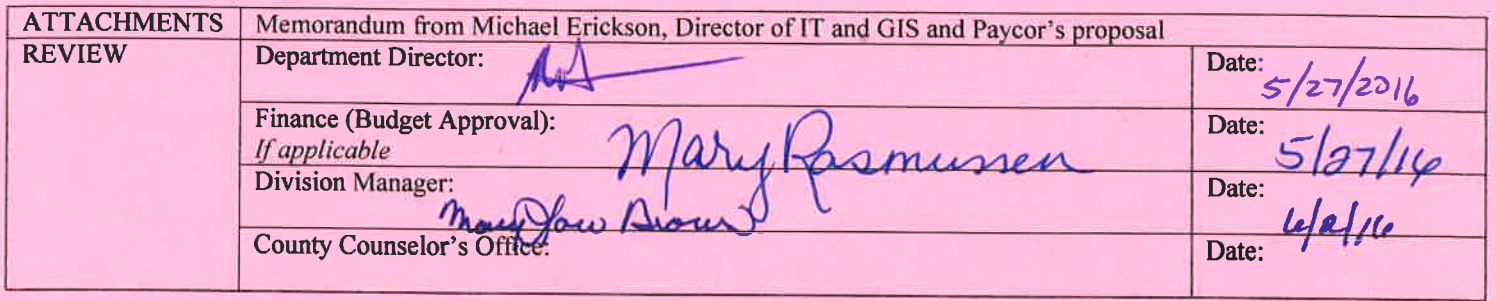 ATTACHMENTS Memorandum from Michael Erickson, Director of IT and GIS and Paycor's proposal
REVIEW Department Director: Date: 5/27/2016
Finance (Budget Approval): Mary Rasmussen Date: 5/27/16
If applicable
Division Manager: Mary Brown Date: /16
County Counselor's Office: Date: